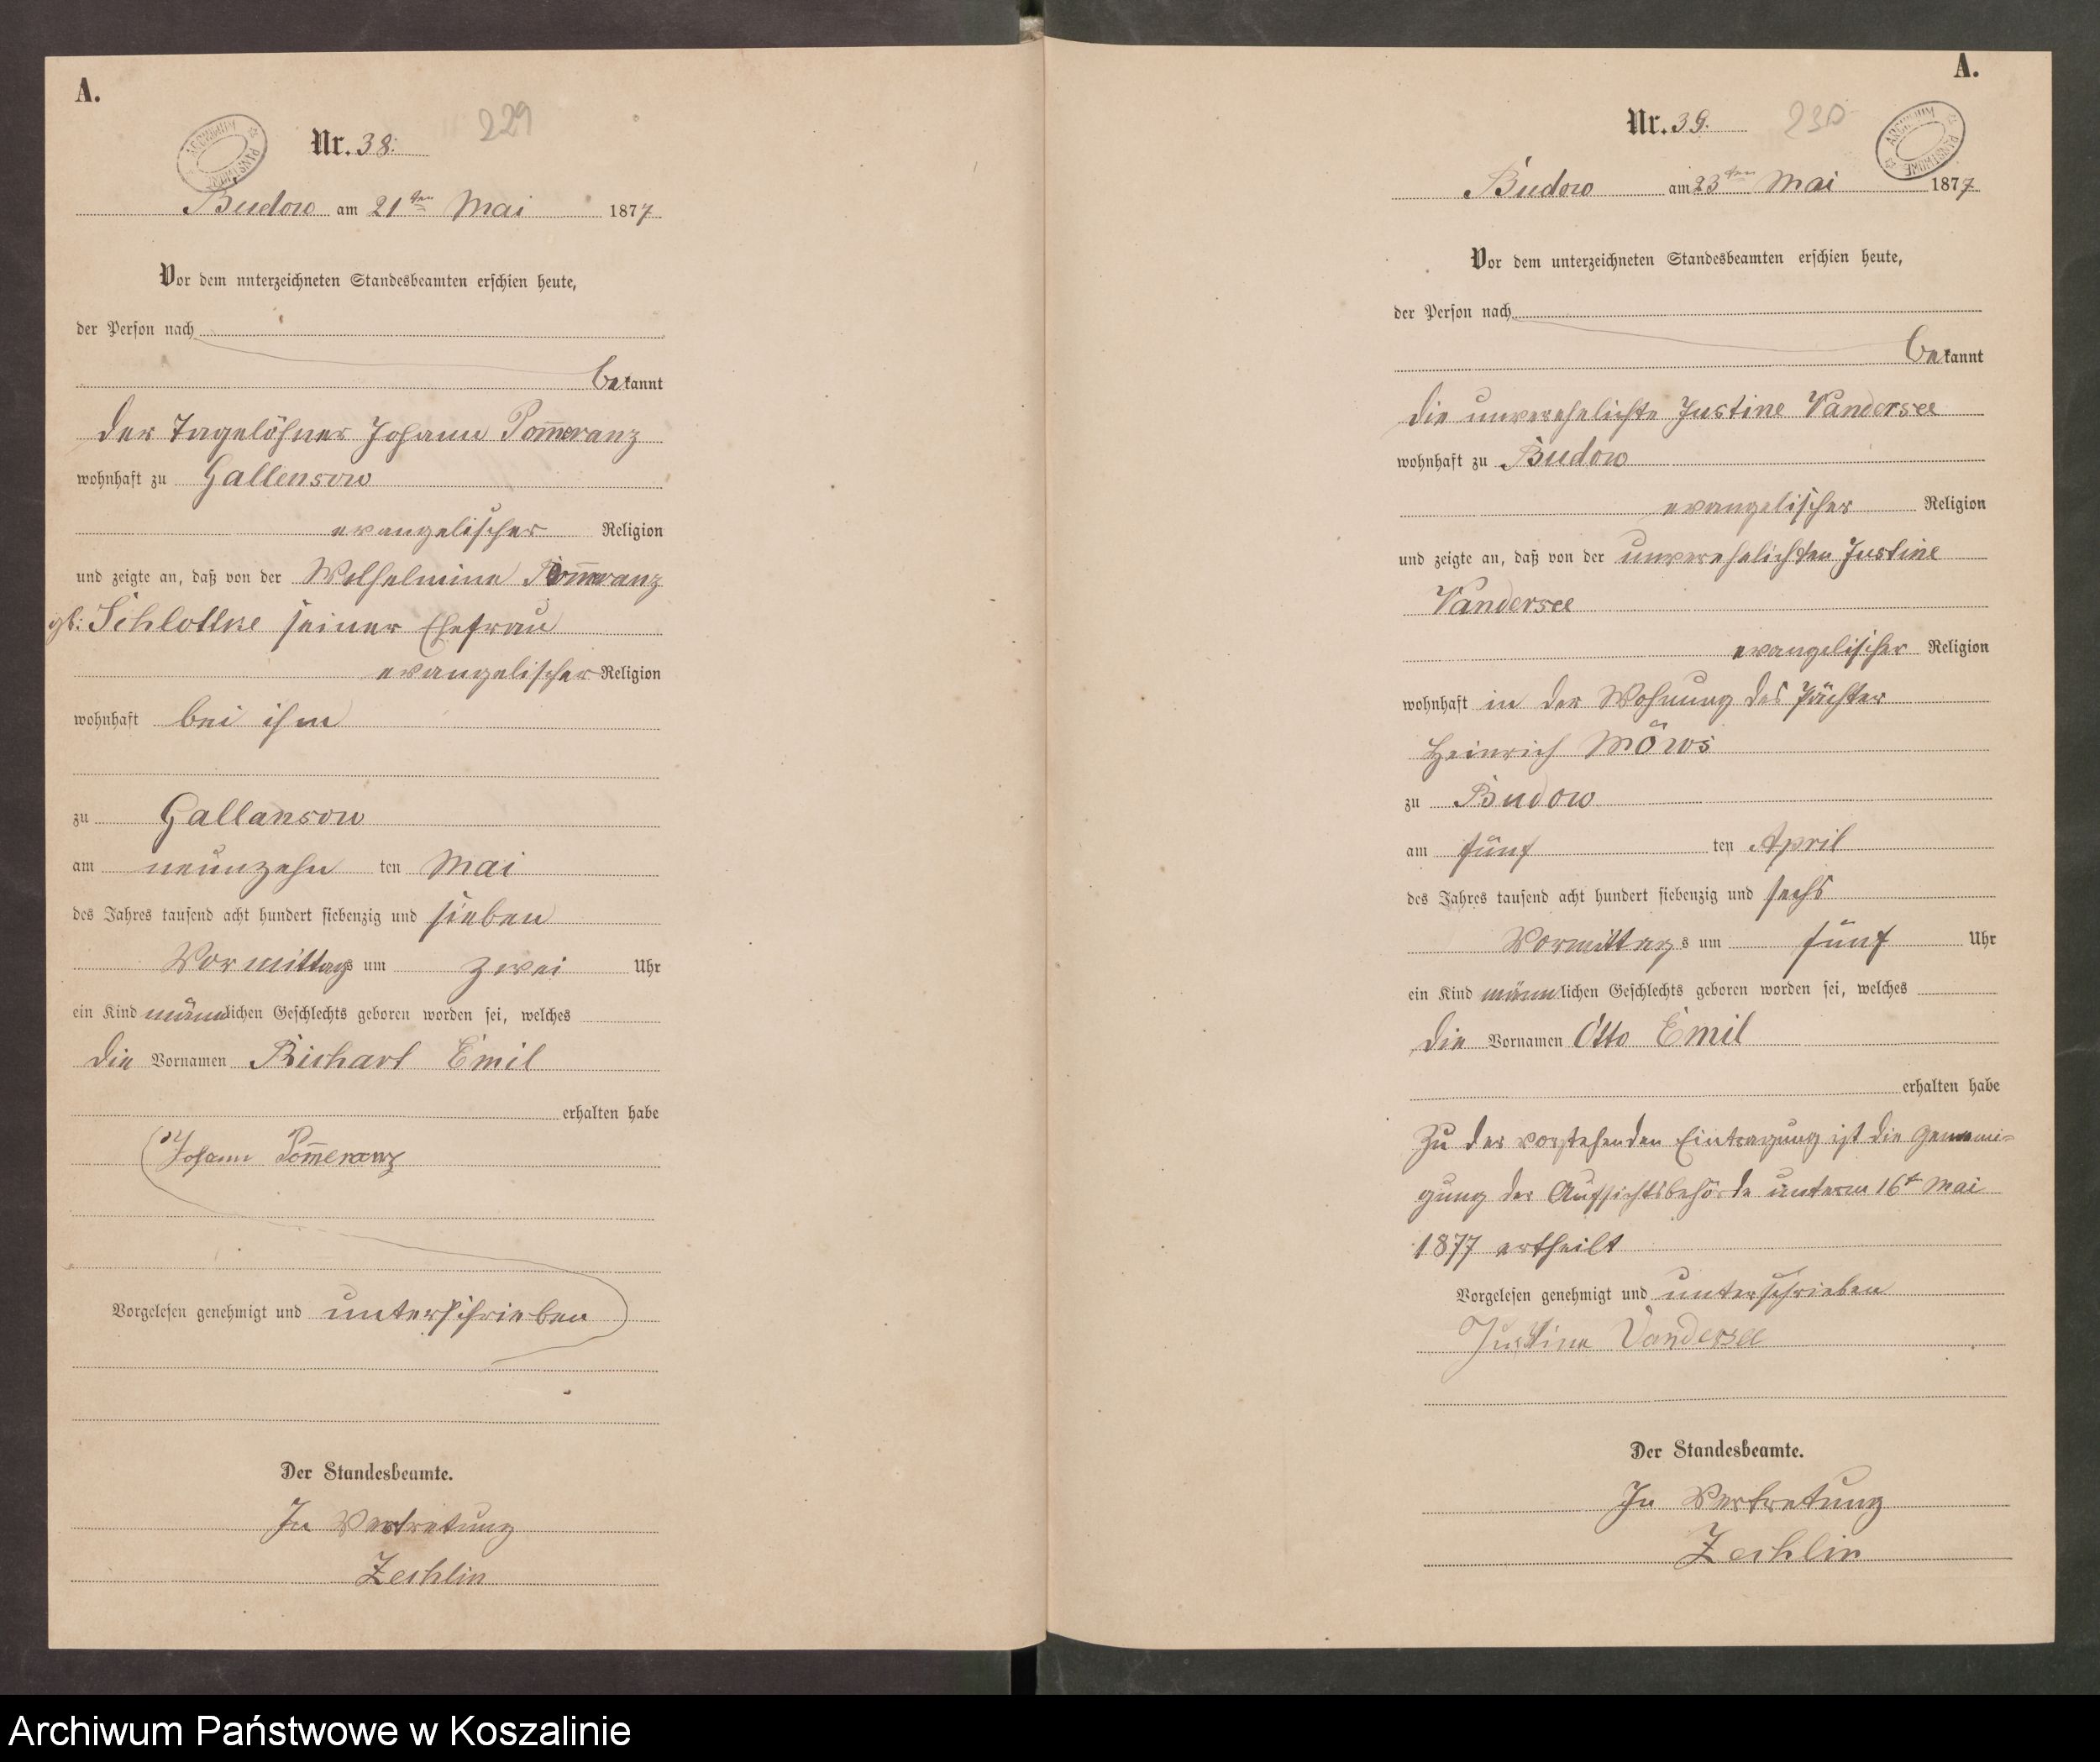 A.
229
Nr. 38.
ARCHIWUM PAŃSTWOWE
Budow am 21ten Mai 1877
Vor dem unterzeichneten Standesbeamten erschien heute,
der Person nach
bekannt
der Tagelöhner Johann Pom̅eranz
wohnhaft zu Gallensow
evangelischer Religion
und zeigte an, daß von der Wilhelmine Pom̅eranz
gb: Schlottke seiner Ehefrau
evangelischer Religion
wohnhaft bei ihm
zu Gallensow
am neunzehn ten Mai
des Jahres tausend acht hundert siebenzig und sieben
Vormittags um zwei Uhr
ein Kind männlichen Geschlechts geboren worden sei, welches
die Vornamen Richart Emil
erhalten habe
Johann Pom̅eranz
Vorgelesen genehmigt und unterschrieben
Der Standesbeamte.
In Vertretung
Zechlin
A.
230
Nr. 39.
ARCHIWUM PAŃSTWOWE
Budow am 23ten Mai 1877
Vor dem unterzeichneten Standesbeamten erschien heute,
der Person nach
bekannt
die unverehelichte Justine Vandersee
wohnhaft zu Budow
evangelischer Religion
und zeigte an, daß von der unverehelichten Justine
Vandersee
evangelischer Religion
wohnhaft in der Wohnung des Pächter
Heinrich Möws
zu Budow
am fünf ten April
des Jahres tausend acht hundert siebenzig und sechs
Vormittags um fünf Uhr
ein Kind männlichen Geschlechts geboren worden sei, welches
die Vornamen Otto Emil
erhalten habe
Zu der vorstehenden Eintragung ist die Genemi-
gung der Aufsichtsbehörde unterm 16t Mai
1877 ertheilt
Vorgelesen genehmigt und unterschrieben
Justine Vandersee
Der Standesbeamte.
In Vertretung
Zechlin
Archiwum Państwowe w Koszalinie